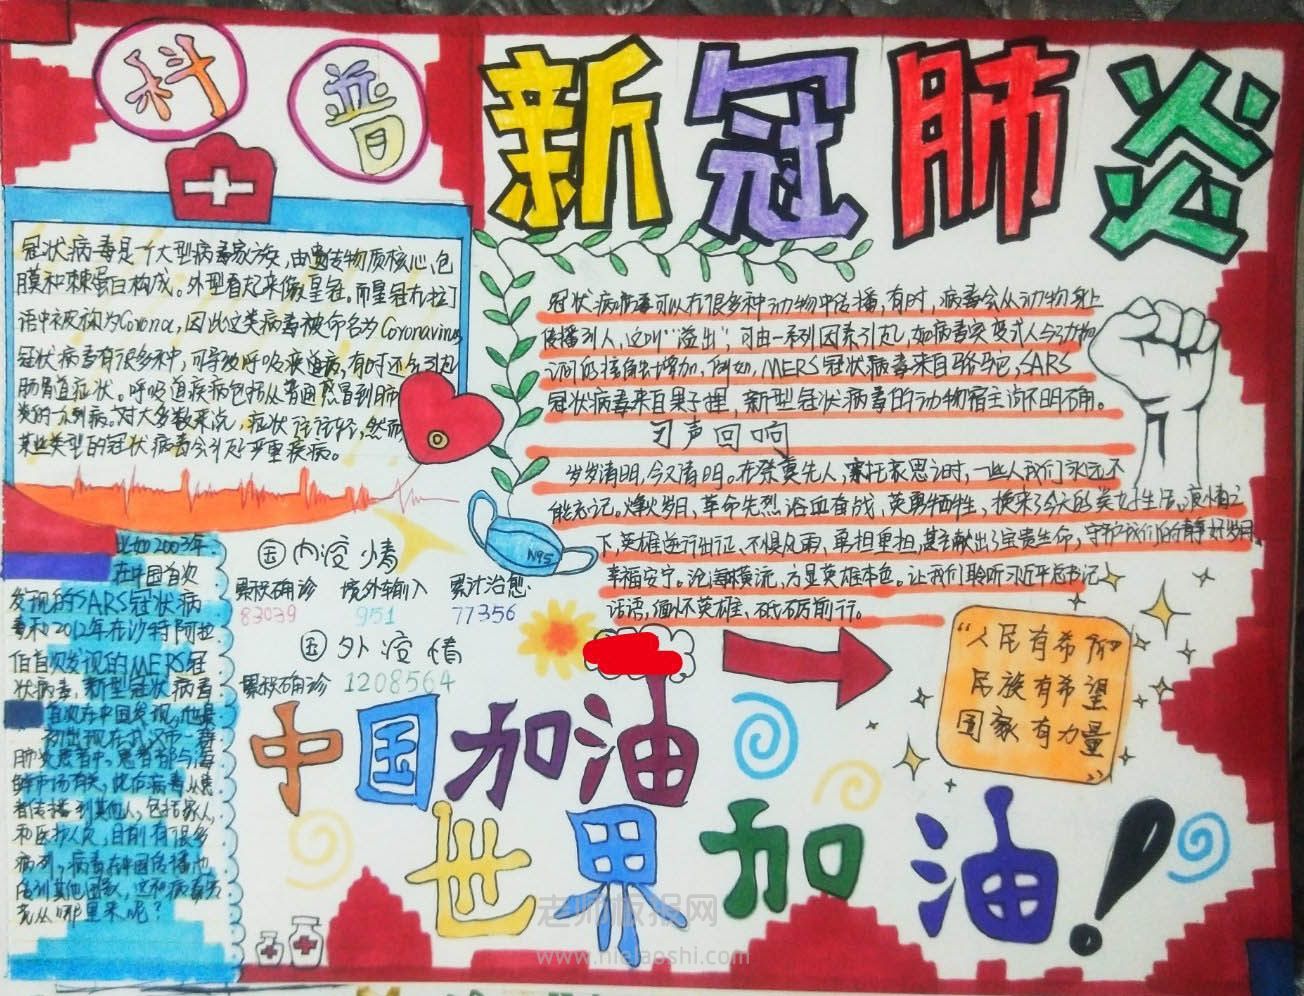 科普
新冠肺炎
冠状病毒是一个大型病毒家族,由遗传物质核心、包
膜和棘蛋白构成。外型看起来像皇冠。而皇冠在拉丁
语中被称为Corona,因此这类病毒被命名为Coronavirus
冠状病毒有很多种,可导致呼吸疾道病,有时还会引起
肠胃道症状。呼吸道疾病包括从普通感冒到肺
炎的一系列病。对大多数来说,症状往往轻,然而
某些类型的冠状病毒会引起严重疾病。
比如2003年
在中国首次
发现的SARS冠状病
毒和2012年在沙特阿拉
伯首次发现的MERS冠
状病毒,新型冠状病毒
首次在中国发现,
初出现在武汉市一群
肺炎患者中。患者都与海
鲜市场有关,此后病毒从患
者传播到其他人,包括家人,
和医护人员,目前有很多
病例,病毒在中国传播也
传到其他国家,这种病毒究
竟从哪里来呢?
冠状病毒可以在很多种动物中传播,有时,病毒会从动物身上
传播到人,这叫"溢出",可由一系列因素引起,如病毒突变或人与动物
间的接触增加,例如,MERS冠状病毒来自骆驼,SARS
冠状病毒来自果子狸,新型冠状病毒的动物宿主尚不明确。
习声回响
岁岁清明,今又清明。在祭奠先人,寄托哀思之时,一些人我们永远不
能忘记。烽火岁月、革命先烈浴血奋战,英勇牺牲,换来了今天的美好生活。疫情之
下,英雄逆行出征、不惧风雨、勇担重担,甚至献出宝贵生命,守护我们的静好岁月、
幸福安宁。沧海横流,方显英雄本色。让我们聆听习近平总书记
话语,缅怀英雄、砥砺前行。
国内疫情
累积确诊 境外输入 累计治愈
83039 951 77356
国外疫情
累积确诊 1208564
N95
"人民有希望
民族有希望
国家有力量
"
中国加油
世界加油!
老师板报网
www.hielaoshi.com